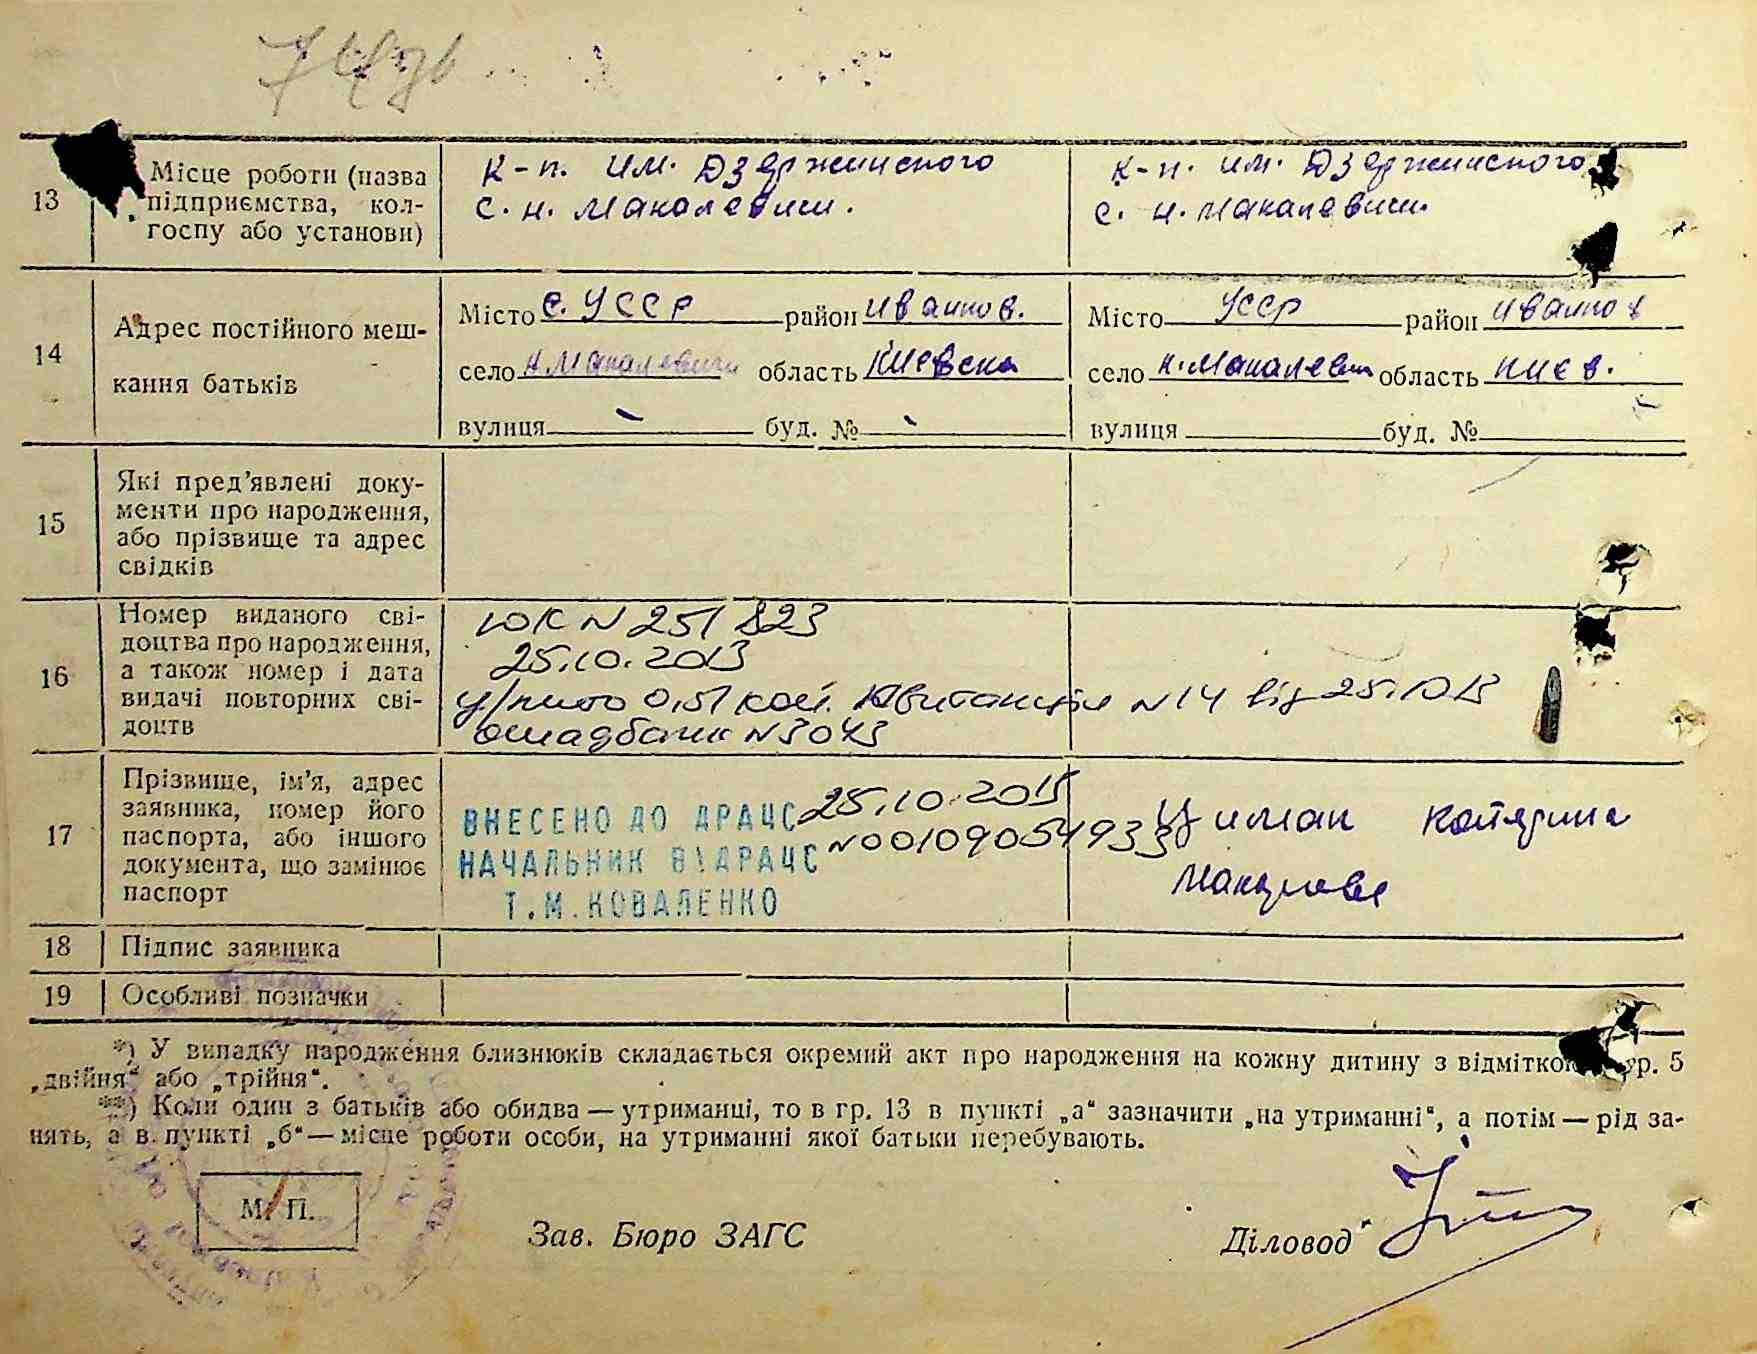 13 Місце роботи (назва підприємства, колгоспу або установи)
к-п. им. Дзержинского
с. н. Макалевичи.
к-п. им. Дзержинского
с. н. Макалевичи.
14 Адрес постійного мешкання батьків
Місто с. УССР район Иванков.
село н. Макалевичи область Киевска
вулиця - буд. № -
Місто УССР район Иванков
село н. Макалевич область Киев.
вулиця буд. №
15 Які пред'явлені документи про народження, або прізвище та адрес свідків
16 Номер виданого свідоцтва про народження, а також номер і дата видачі повторних свідоцтв
ЮК N 251823
25.10.2013
д/мито 0,51 коп. Квитанція N14 від 25.10.13
ощадбанк N3043
17 Прізвище, ім'я, адрес заявника, номер його паспорта, або іншого документа, що замінює паспорт
ВНЕСЕНО ДО ДРАЦС 25.10.2013
НАЧАЛЬНИК ВДРАЦС N00109054933
Т.М. КОВАЛЕНКО
Катерина
18 Підпис заявника
19 Особливі позначки
*) У випадку народження близнюків складається окремий акт про народження на кожну дитину з відміткою гр. 5
„двійня“ або „трійня“.
**) Коли один з батьків або обидва — утриманці, то в гр. 13 в пункті „а“ зазначити „на утриманні“, а потім — рід за-
нять, а в пункті „б“ — місце роботи особи, на утриманні якої батьки перебувають.
М. П.
Зав. Бюро ЗАГС
Діловод